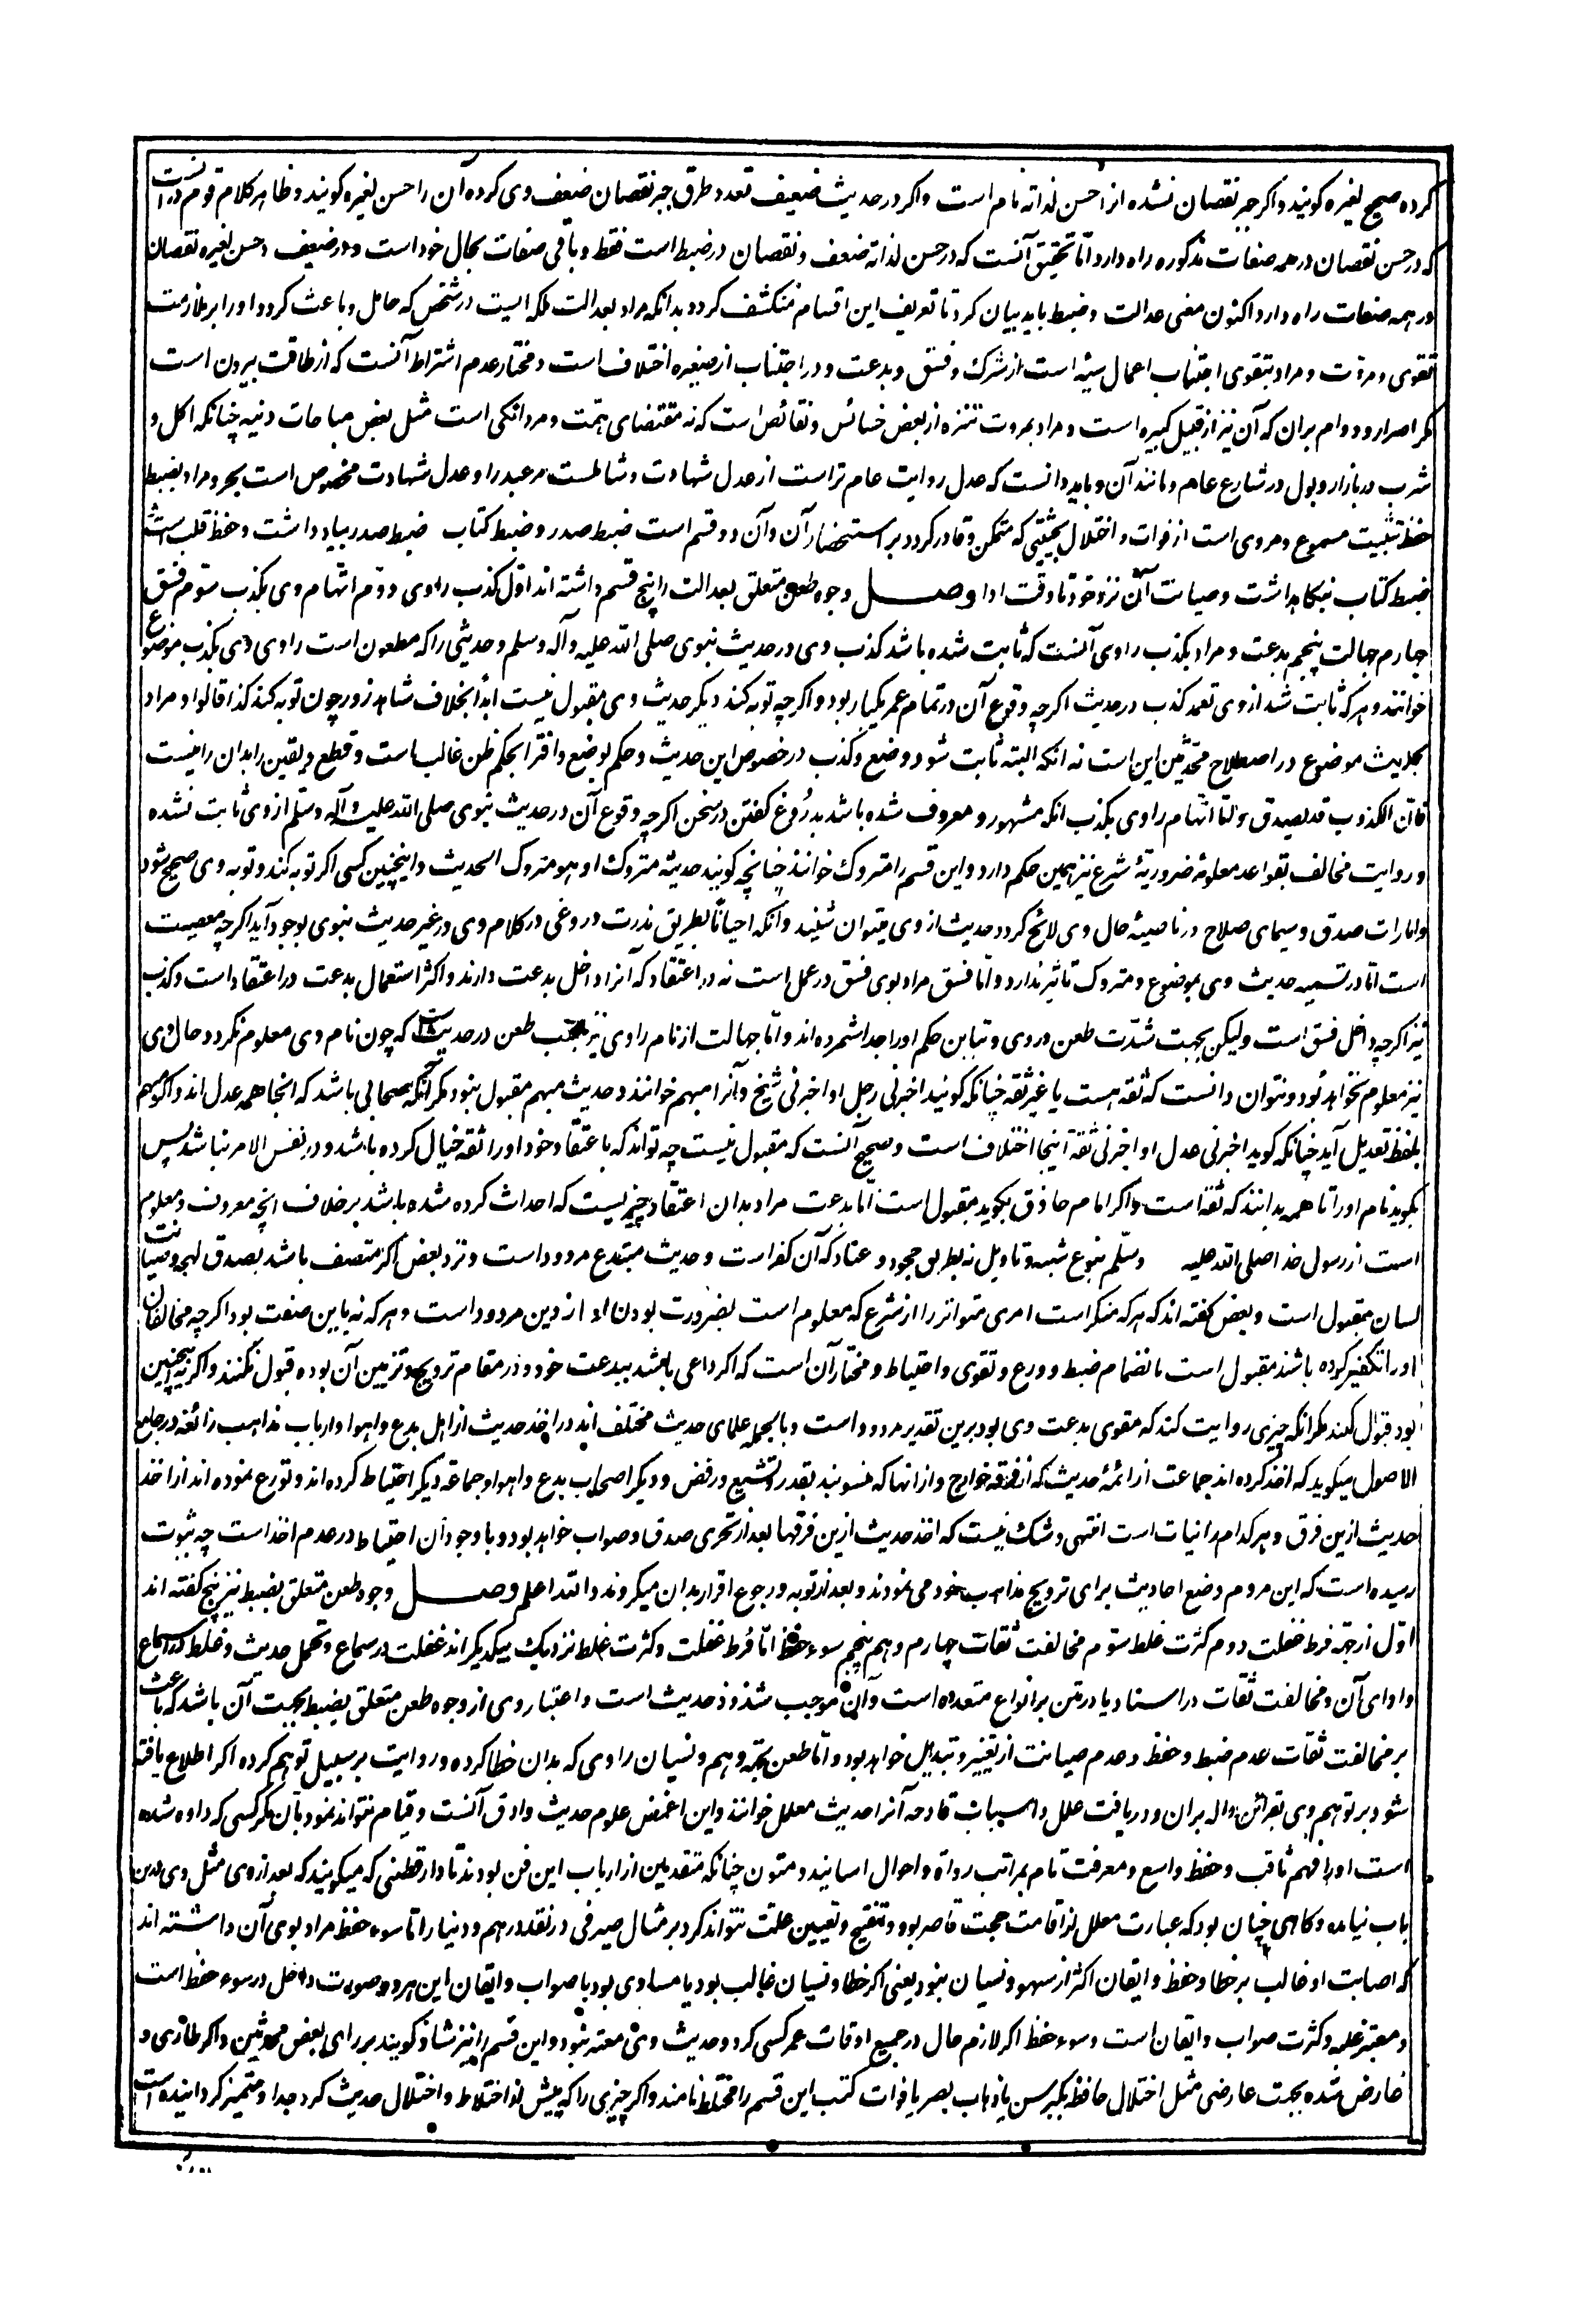 کرده صحیح لغیره کویند و اکر جبر نقصان نشده از احسن لذاته نام است و اکر در حدیث ضعیف تعدد طرق جبر نقصان ضعف وی کرده آن را حسن لغیره کویند و ظاهر کلام قوم در انست
که در حسن نقصان در همه صفات مذکوره راه دارد اما تحقیق آنست که در حسن لذاته ضعف و نقصان در ضبط است فقط و باقی صفات بحال خود است و در ضعیف و حسن لغیره نقصان
در همه صفات راه دارد اکنون معنی عدالت و ضبط باید بیان کرد تا تعریف این اقسام منکشف کردد بدانکه مراد بعدالت ملکه ایست در شخص که حامل و باعث کردد او را بر ملازمت
تقوی و مروت و مراد بتقوی اجتناب اعمال سیئه است از شرک و فسق و بدعت و در اجتناب از صغیره اختلاف است و مختار عدم اشتراط آنست که از طاقت بیرون است
مکر اصرار و دوام بران که آن نیز از قبیل کبیره است و مراد بمروت تنزه از بعض خسائس و نقائص است که نه مقتضای همت و مردانکی است مثل بعض مباحات دنیه چنانکه اکل و
شرب در بازار و بول در شارع عام و مانند آن و باید دانست که عدل روایت عام تر است از عدل شهادت و شاملست مر عبد را و عدل شهادت مخصوص است بحر و مراد بضبط
حفظ تثبیت مسموع و مروی است از فوات و اختلال بحیثیتی که متمکن و قادر کردد بر استحضار آن و آن دو قسم است ضبط صدر و ضبط کتاب ضبط صدر بیاد داشت و حفظ قلب است
ضبط کتاب نیکاهداشت وصیانت آن نزد خود تا وقت ادا وصل وجوه طعن متعلق بعدالت را پنج قسم داشته اند اول کذب راوی دوم اتهام وی بکذب سوم فسق
چهارم جهالت پنجم بدعت و مراد بکذب راوی آنست که ثابت شده باشد کذب وی در حدیث نبوی صلی الله علیه و آله وسلم و حدیثی را که مطعون است راوی وی بکذب موضوع
خوانند و هر که ثابت شد از وی تعمد کذب در حدیث اکرچه وقوع آن در تمام عمر یکبار بود و اکرچه توبه کند دیکر حدیث وی مقبول نیست ابدا بخلاف شاهد زور چون توبه کند کذا قالوا و مراد
بحدیث موضوع در اصطلاح محدثین این است نه انکه البته ثابت شود وضع و کذب در خصوص این حدیث و حکم بوضع و افترا بحکم ظن غالب است و قطع و یقین را بدان راه نیست
فان الکذوب قد یصدق و اما اتهام راوی بکذب انکه مشهور و معروف شده باشد بدروغ کفتن در سخن اکرچه وقوع آن در حدیث نبوی صلی الله علیه و آله وسلم از وی ثابت نشده
و روایت مخالف بقواعد معلومه ضروریه شرع نیز همین حکم دارد و این قسم را متروک خوانند چنانچه کویند حدیثه متروک او هو متروک الحدیث و اینچنین کسی اکر توبه کند و توبه وی صحیح شود
و امارات صدق و سیمای صلاح در ناصیه حال وی لائح کردد حدیث از وی میتوان شنید و آنکه احیانا بطریق ندرت دروغی در کلام وی در غیر حدیث نبوی بوجود آید اکرچه معصیت
است اما در تسمیه حدیث وی بموضوع و متروک تاثیر ندارد و اما فسق مراد بوی فسق در عمل است نه در اعتقاد که آنرا داخل بدعت دارند و اکثر استعمال بدعت در اعتقاد است و کذب
نیز اکرچه داخل فسق است ولیکن بجهت شدت طعن در وی و تباین حکم او را جدا شمرده اند و اما جهالت از نام راوی نیز طعن در حدیث که چون نام وی معلوم نکردد حال وی
نیز معلوم نخواهد بود و نتوان دانست که ثقه هست یا غیر ثقه چنانکه کویند اخبرنی رجل او اخبرنی شیخ و آنرا مبهم خوانند و حدیث مبهم مقبول نبود مکر آنکه صحابی باشد که انجا همه عدل اند و اکر مبهم
بلفظ تعدیل آید چنانکه کوید اخبرنی عدل او اخبرنی ثقة اینجا اختلاف است و صحیح آنست که مقبول نیست چه تواند که باعتقاد خود او را ثقه خیال کرده باشد و در نفس الامر نباشد پس
بکوید نام او را تا همه بدانند که ثقه است و اکر امام حاذق بکوید مقبول است اما بدعت مراد بدان اعتقاد چیزیست که احداث کرده شده باشد برخلاف انچه معروف و معلوم
است از رسول خدا صلی الله علیه وسلم بنوع شبهه و تاویل نه بطریق جحود و عناد که آن کفر است و حدیث مبتدع مردود است و نزد بعض اکر متصف باشد بصدق لهجه و صیانت
لسان مقبول است و بعض کفته اند که هر که منکر است امری متواتر را از شرع که معلوم است بضرورت بودن او از دین مردود است و هر که نه باین صفت بود اکرچه مخالفان
او را تکفیر کرده باشند مقبول است بانضمام ضبط و ورع و تقوی و احتیاط و مختار آن است که اکر داعی باشد ببدعت خود و در مقام ترویج و تزیین آن بوده قبول نکنند و اکر نه اینچنین
بود قبول کنند مکر انکه چیزی روایت کند که مقوی بدعت وی بود برین تقدیر مردود است و بالجمله علمای حدیث مختلف اند در اخذ حدیث از اهل بدع و اهوا و ارباب مذاهب زائغه در جامع
الاصول میکوید که اخذ کرده اند جماعت از ائمه حدیث که از فرقه خوارج و از انها که منسوبند بقدر و تشیع و رفض و دیکر اصحاب بدع و اهوا و جماعه دیکر احتیاط کرده اند و تورع نموده اند از اخذ
حدیث ازین فرق و هر کدام را نیات است انتهی و شک نیست که اخذ حدیث ازین فرقها بعد از تحری صدق و صواب خواهد بود و با وجود آن احتیاط در عدم اخذ است چه ثبوت
رسیده است که این مردم وضع احادیث برای ترویج مذاهب خود می نمودند و بعد از توبه و رجوع اقرار بدان میکردند والله اعلم وصل وجوه طعن متعلق بضبط نیز پنج کفته اند
اول از جهة فرط غفلت دوم کثرت غلط سوم مخالفت ثقات چهارم وهم پنجم سوء حفظ اما فرط غفلت و کثرت غلط نزدیک بیکدیکر اند غفلت در سماع و تحمل حدیث و غلط در اسماع
و ادای آن و مخالفت ثقات در اسناد یا در متن بر انواع متعدده است و آن موجب شذوذ حدیث است و اعتبار وی از وجوه طعن متعلق بضبط بجهت آن باشد که باعث
بر مخالفت ثقات عدم ضبط و حفظ و عدم صیانت از تغییر و تبدیل خواهد بود و اما طعن بجهة وهم و نسیان راوی که بدان خطا کرده و روایت بر سبیل توهم کرده اکر اطلاع یافته
شود بر توهم وی بقرائن داله بران و دریافت علل و اسباب قادحه آنرا حدیث معلل خوانند و این اغمض علوم حدیث و ادق آنست و قیام نتواند نمود بآن مکر کسی که داده شده
است او را فهم ثاقب و حفظ واسع و معرفت تام بمراتب رواة و احوال اسانید و متون چنانکه متقدمین از ارباب این فن بودند تا دارقطنی که میکویند که بعد از وی مثل وی درین
باب نیامده و کاهی چنان بود که عبارت معلل از اقامت حجت قاصر بود و تنقیح و تعیین علت نتواند کرد بر مثال صیرفی در نقد درهم و دینار اما سوء حفظ مراد بوی آن داشته اند
که اصابت او غالب بر خطا و حفظ و ایقان اکثر از سهو و نسیان نبود یعنی اکر خطا و نسیان غالب بود یا مساوی بود با صواب و ایقان این هر دو صورت داخل در سوء حفظ است
و معتبر غلبه و کثرت صواب و ایقان است و سوء حفظ اکر لازم حال در جمیع اوقات عمر کسی کردد حدیث وی معتبر نبود و این قسم را نیز شاذ کویند بر رای بعض محدثین و اکر طاری و
عارض شده بجهت عارضی مثل اختلال حافظ بکبر سن یا ذهاب بصر یا فوات کتب این قسم را مختلط نامند و اکر چیزی را که پیش از اختلاط و اختلال حدیث کرد جدا و متمیز کردانیده است